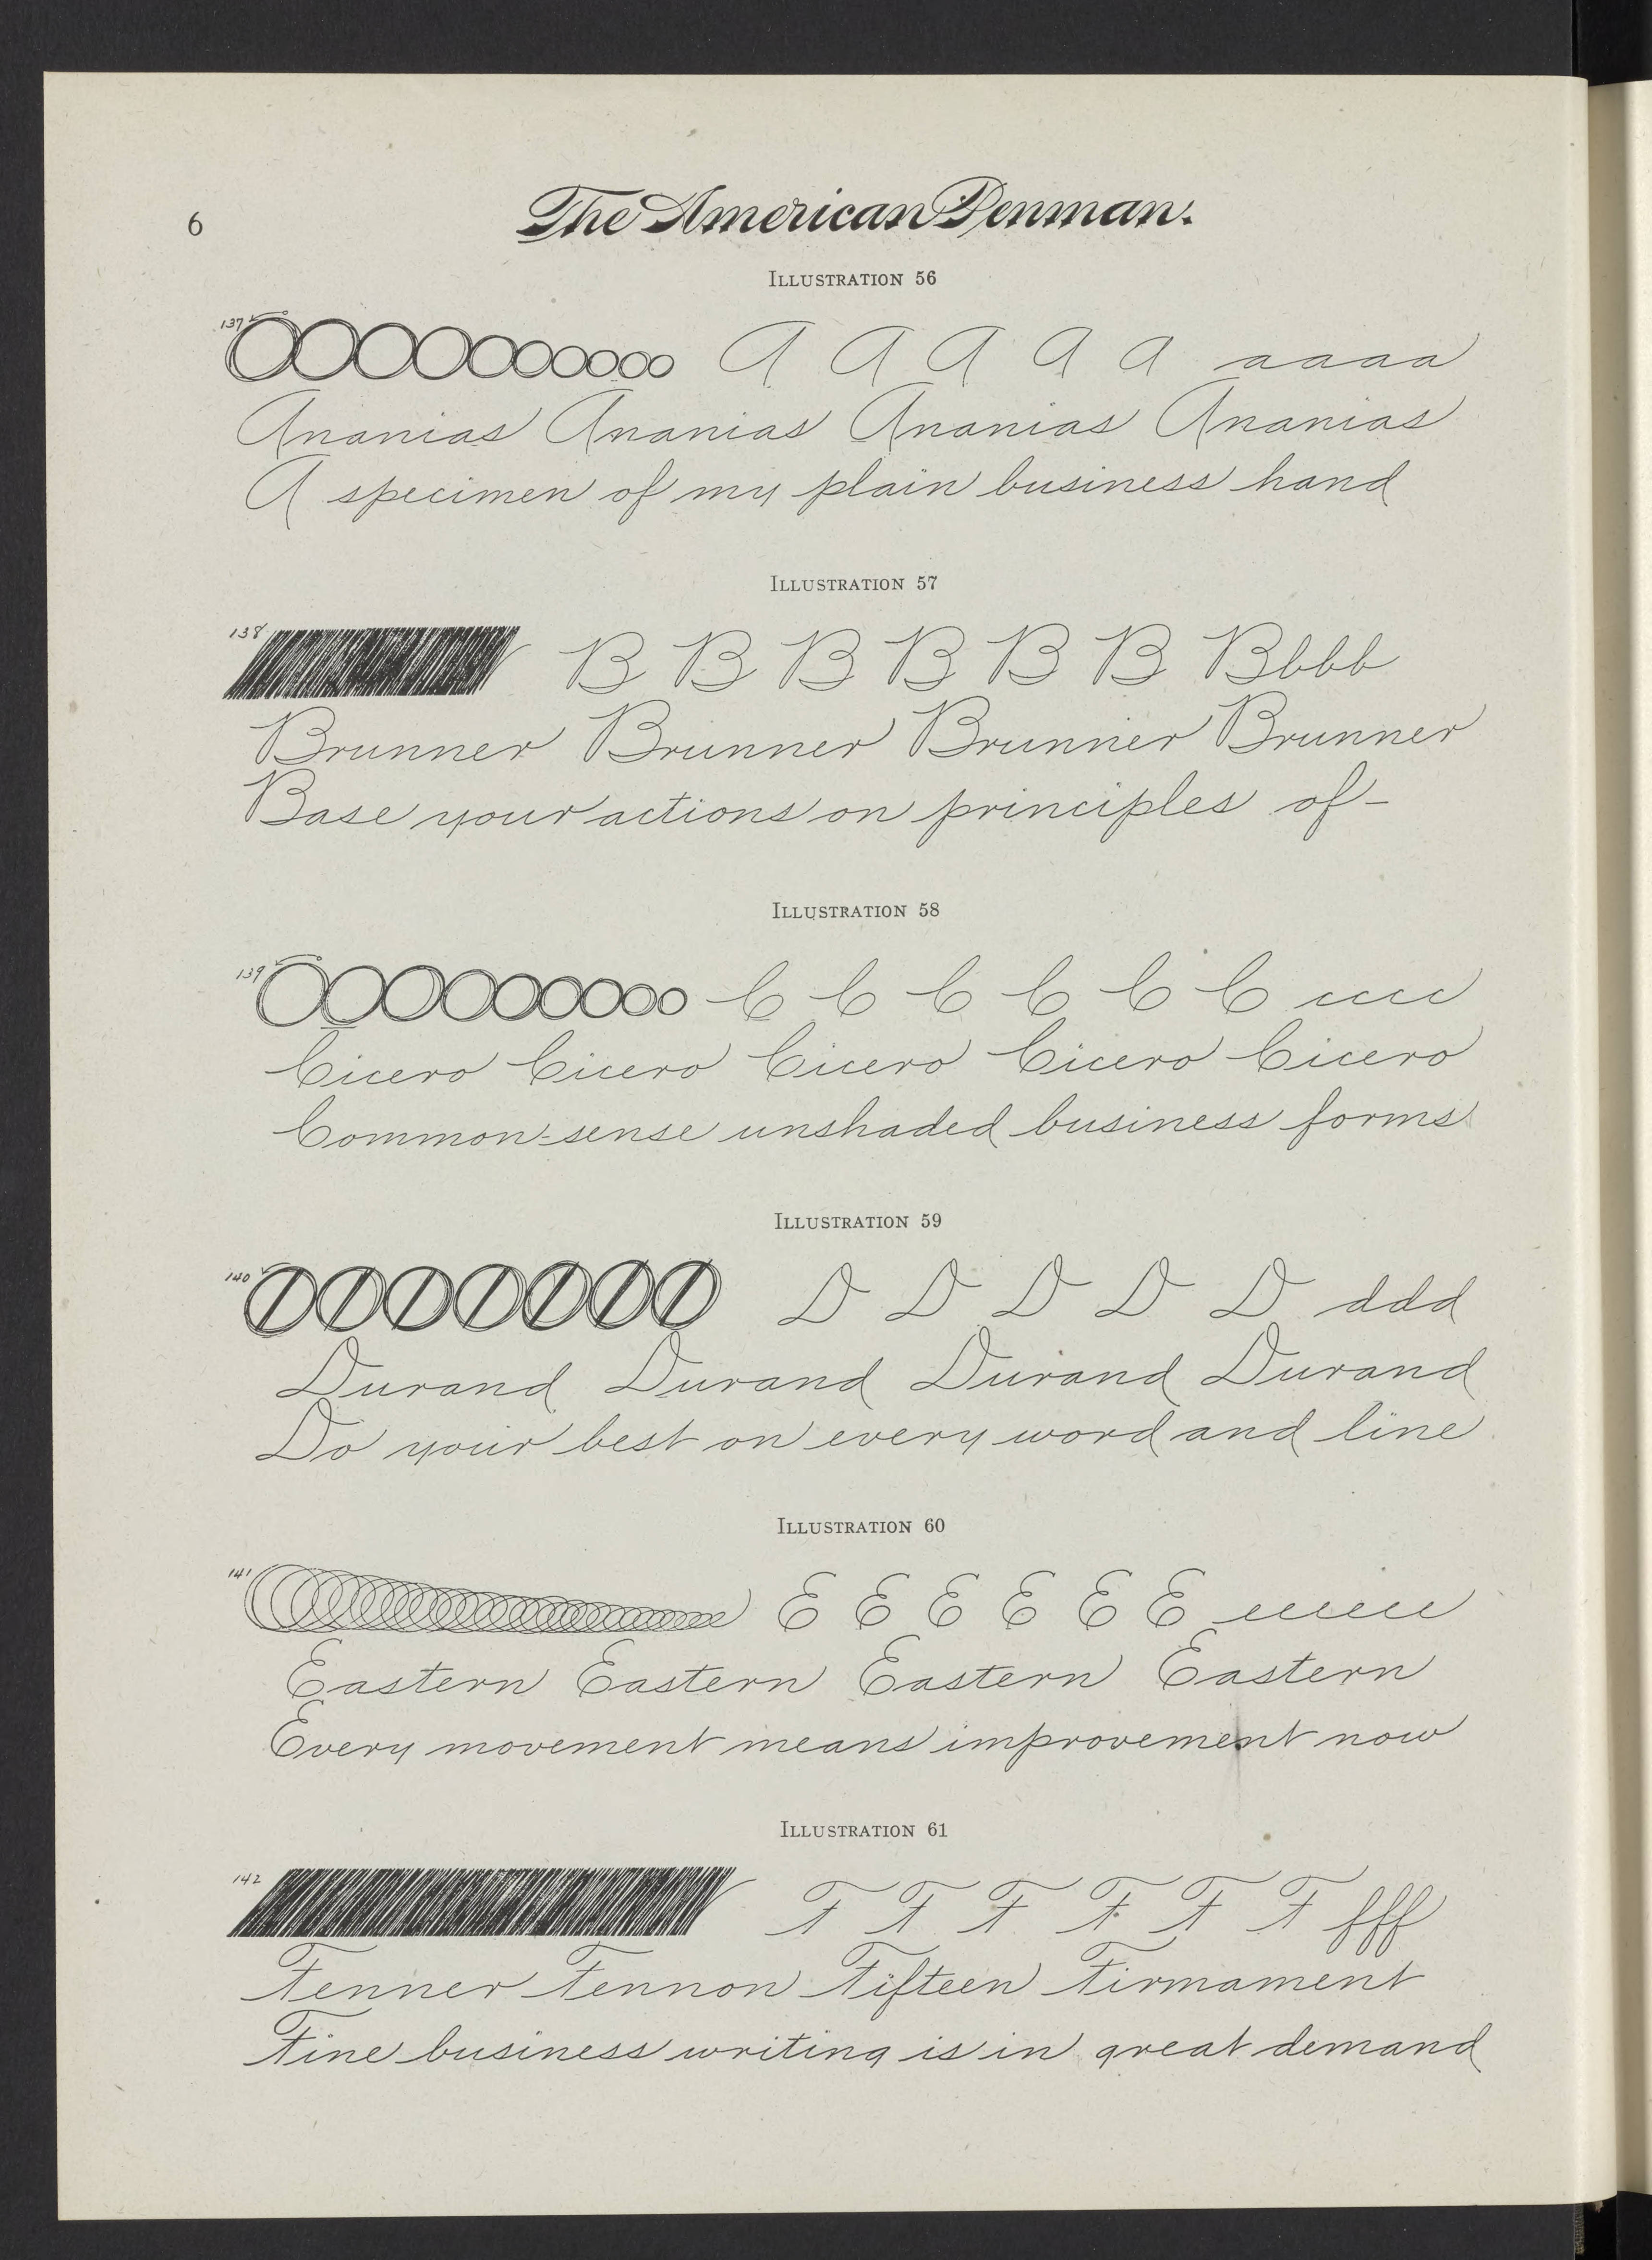 6
The American Penman.
ILLUSTRATION 56
137 A A A A A a a a a
Ananias Ananias Ananias Ananias
A specimen of my plain business hand
ILLUSTRATION 57
138 B B B B B B B b b b
Brunner Brunner Brunner Brunner
Base your actions on principles of-
ILLUSTRATION 58
139 C C C C C C c c c c
Cicero Cicero Cicero Cicero Cicero
Common-sense unshaded business forms
ILLUSTRATION 59
140 D D D D D d d d
Durand Durand Durand Durand
Do your best on every word and line
ILLUSTRATION 60
141 E E E E E E e e e e e
Eastern Eastern Eastern Eastern
Every movement means improvement now
ILLUSTRATION 61
142 F F F F F F f f f
Fenner Fennon Fifteen Firmament
Fine business writing is in great demand